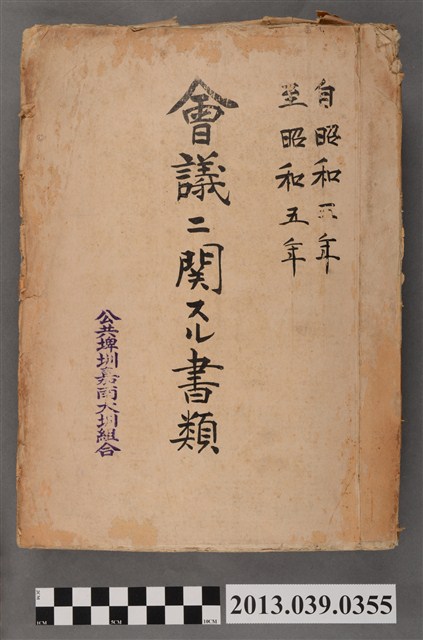 自昭和三年
至昭和五年
會議ニ関スル書類
公共埤圳嘉南大圳組合
1CM 5CM 10CM
2013.039.0355